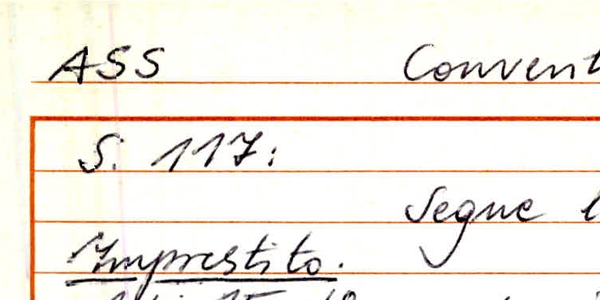 ASS Convent
S. 117:
Segue l
Imprestito.